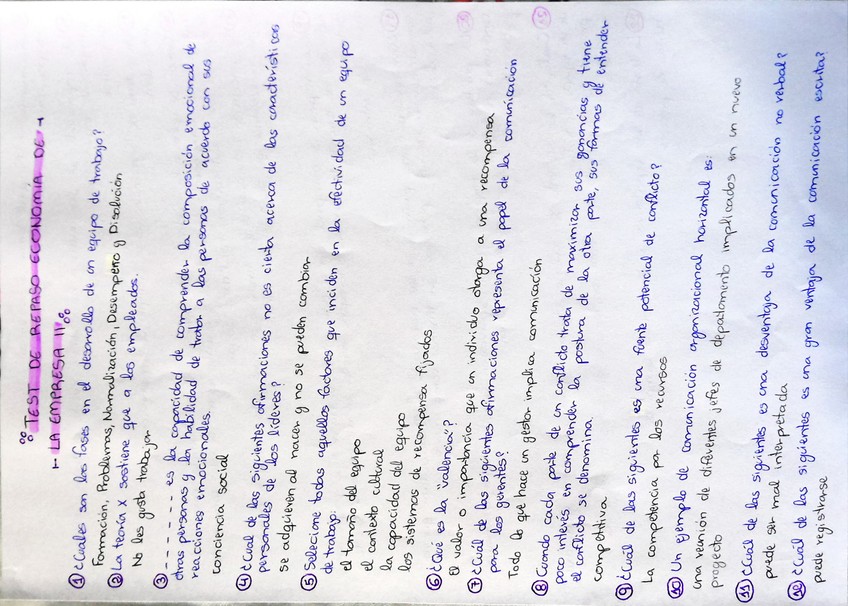 TEST DE REPASO ECONOMÍA DE
LA EMPRESA II
① ¿Cuáles son las fases en el desarrollo de un equipo de trabajo?
Formación, Problemas, Normalización, Desempeño y Disolución
② La teoría X sostiene que a los empleados.
No les gusta trabajar
③ ------- es la capacidad de comprender la composición emocional de
otras personas y la habilidad de tratar a las personas de acuerdo con sus
reacciones emocionales.
conciencia social
④ ¿Cual de las siguientes afirmaciones no es cierta acerca de las características
personales de los líderes?
se adquieren al nacer y no se pueden cambiar
⑤ Selecione todas aquellos factores que inciden en la efectividad de un equipo
de trabajo:
el tamaño del equipo
el contexto cultural
la capacidad del equipo
los sistemas de recompensa fijados
⑥ ¿Qué es la 'valencia'?
El valor o importancia que un individuo otorga a una recompensa
⑦ ¿Cuál de las siguientes afirmaciones representa el papel de la comunicacion
para los gerentes?
Todo lo que hace un gestor implica comunicación
⑧ Cuando cada parte de un conflicto trata de maximizar sus ganancias y tiene
poco interés en comprender la postura de la otra parte, sus formas de entender
el conflicto se denomina.
competitiva
⑨ ¿Cual de las siguientes es una fuente potencial de conflicto?
La competencia por los recursos
⑩ Un ejemplo de comunicación organizacional horizontal es:
una reunión de diferentes jefes de departamento implicados en un nuevo
proyecto
⑪ ¿Cuál de las siguientes es una desventaja de la comunicación no verbal?
puede ser mal interpretada
⑫ ¿Cuál de las siguientes es una gran ventaja de la comunicación escrita?
puede registrarse